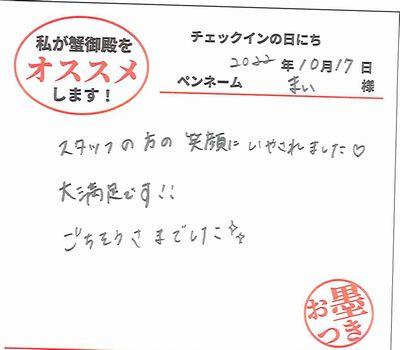 私が蟹御殿を
オススメ
します！
チェックインの日にち
2022年10月17日
ペンネーム まい 様
スタッフの方の笑顔にいやされました♡
大満足です!!
ごちそうさまでした✨
お墨つき